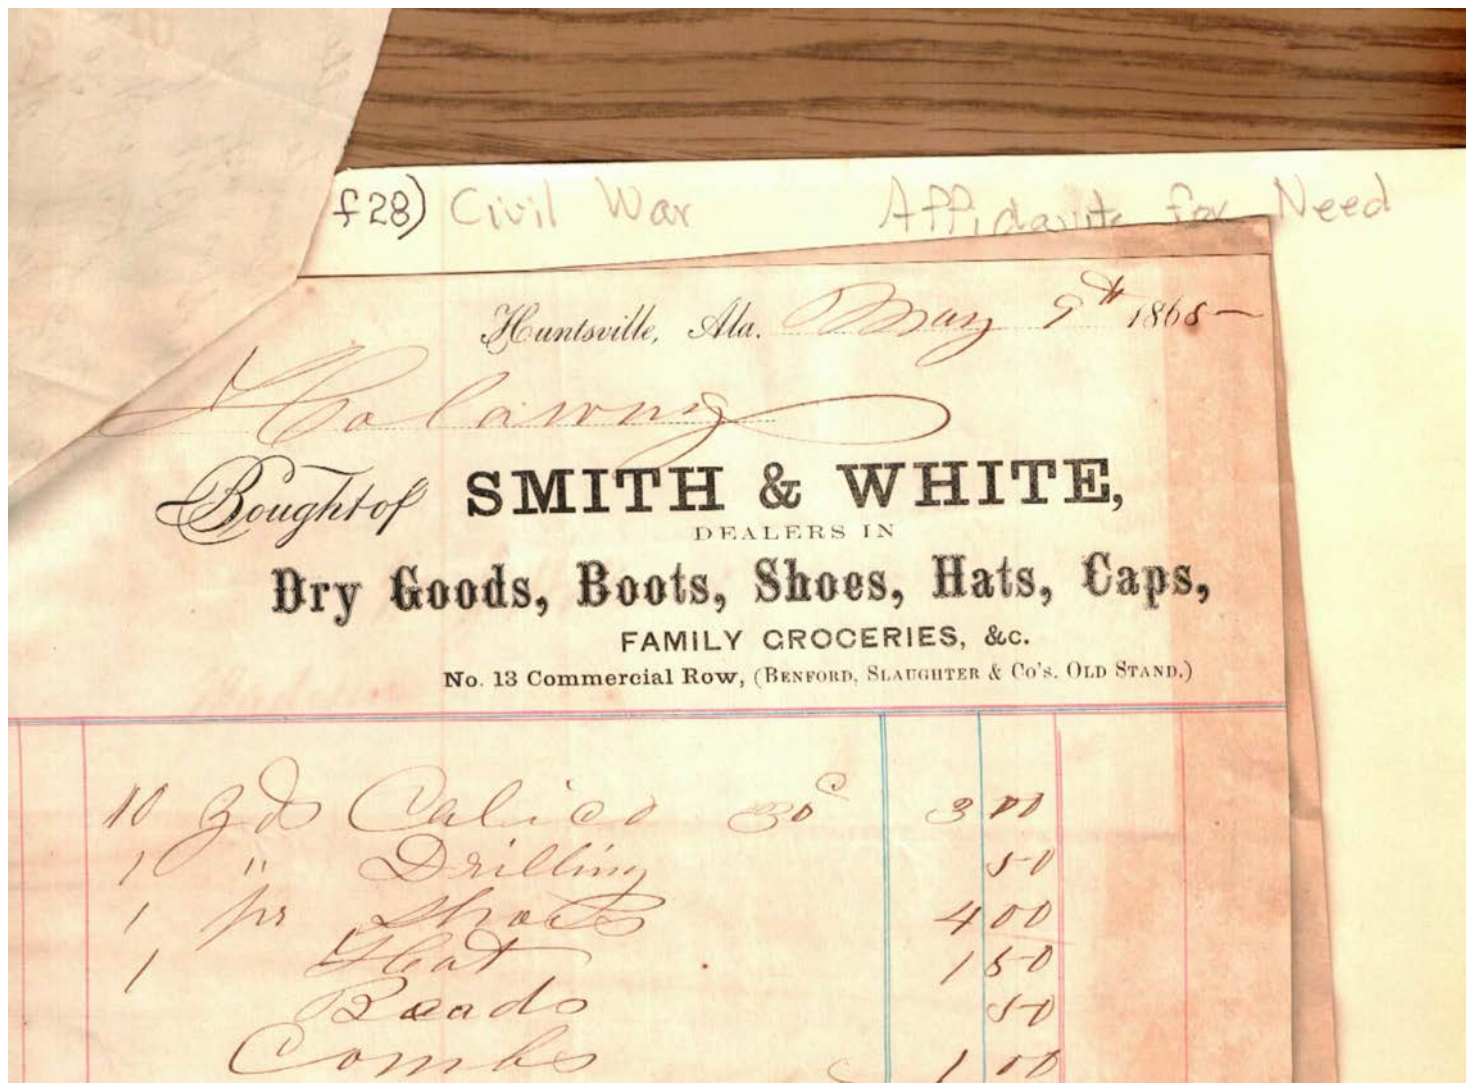 f28) Civil War Affidavits for Need
Huntsville, Ala. May 9th 1868
Bought of SMITH & WHITE,
DEALERS IN
Dry Goods, Boots, Shoes, Hats, Caps,
FAMILY GROCERIES, &c.
No. 13 Commercial Row, (BENFORD, SLAUGHTER & CO'S. OLD STAND.)
10 yds Calico 30c 3 00
1 " Drilling 50
1 pr Shoes 4 00
1 Hat 1 50
Beads 50
Combs 1 00